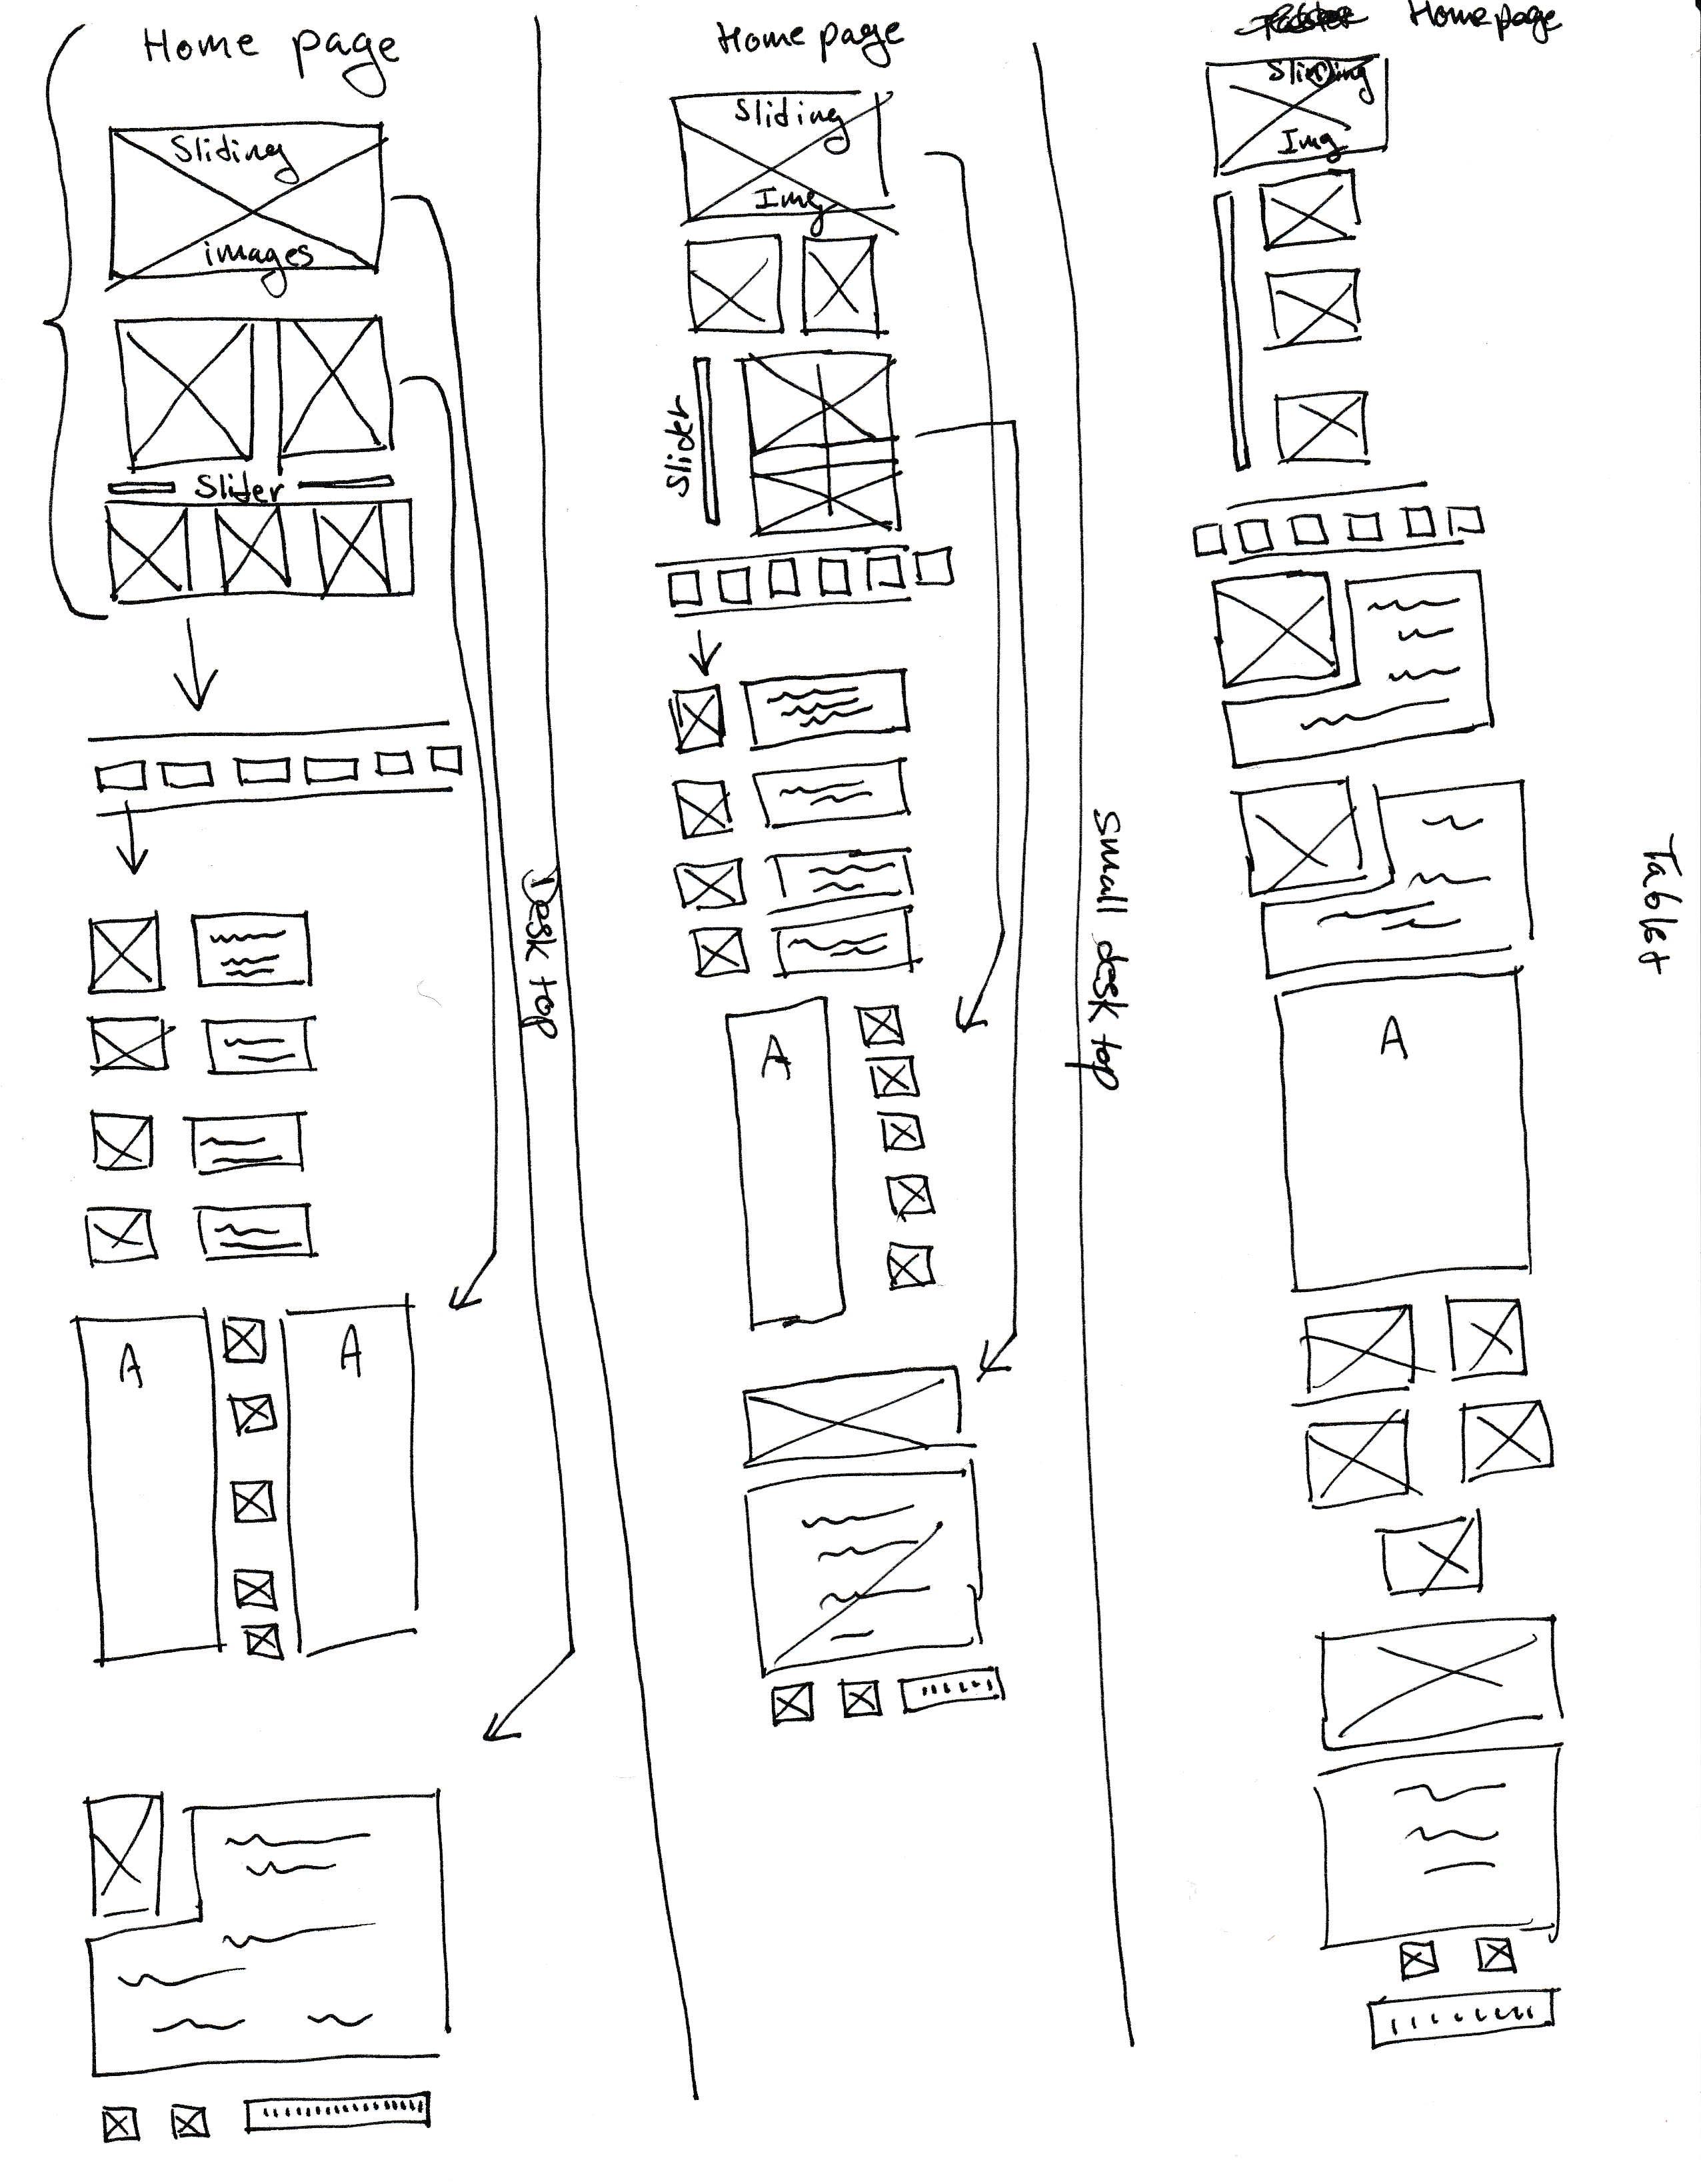 Home page
Sliding
images
Slider
A
A
Desktop
Home page
Sliding
Img
Slider
A
Small desktop
Home page
Sliding
Img
A
Tablet